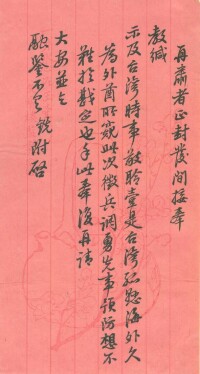 再肅者正封發間接奉
教緘
示及台灣時事敬聆壹是台灣孤懸海外久
為外酋所覬此次徵兵調勇先事預防想不
難於戡定也手此奉復再請
大安並之
融鑒不宣銑附啓